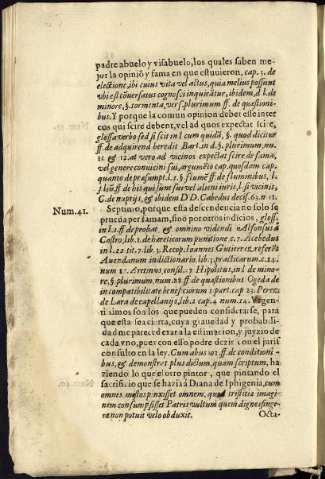 padre abuelo y visabuelo, los quales saben me-
jor la opiniõ y fama en que estuvieron, cap. 5. de
electione, ibi cuius vita vel actus, quia melius possunt
vbi est cõversatus cognosci inquietur, ibidem, d l. de
minore, §. tormenta, vers. plurimum ff. de questioni-
bus. Y porque la comun opinion debet esse inter
eos qui scire debent, vel ad quos expectat scire,
glossa verbo sed si scit in l cum quidã, §. quod dicitur
ff. de adquirend heredit Bart. in d. §. plurimum, nu.
11 & 12. at vero ad vicinos expectat scire de fama,
vel genere convicini sui, argumẽto cap. quosdam cap.
quanto de præsumpt. l. 1. §. flumẽ ff. de fluminibus, l.
j. liũ ff. de bis qui sunt sui vel alieni iuris, l. si vicinis,
C. de nuptijs, & ibidem DD. Cabedus decis. 63. n. 12.
Num. 41. Septimo, porque esta descendencia no solo se
prueua per famam, sino por otros indicios, gloss.
in l. 2. ff. de probat, & omnino videndi Alfonsus à
Castro, lib. 1. de hæreticorum punitione, c. 7. Acebedus
in l. 22. tit. 7. lib. 3. Recop. Ioannes Gutierrez, refert
Auendanum in dictionario lib. 3. practicarum q. 14.
num 17. Aretinus, consil. 7 Hipolitus, in l. de mino-
re, §. plurimum, num. 18 ff. de questionibus Ogeda de
incompatibilitate beneficiorum 1. part. cap 25. Perez
de Lara de capellanijs, lib. 2 cap. 4 num. 24. Vrgen-
tissimos son los que pueden considerarse, para
que esta sea cierta, cuya grauedad y probabili-
dad me parece dexar a la estimacion, y juyzio de
cada vno, pues con ello podre dezir con el juris-
consulto en la ley. Cum abus 101. ff. de conditioni-
bus, & demonstr. et plus dictum, quam scriptum, ha-
ziendo lo que el otro pintor, que pintando el
sacrificio que se hazia à Diana de Iphigenia, cum
omnes mæstos pinxisset omnem, quod tristitia imagi-
nem consumpsisset Patris vultum quem digne finge-
re non potuit velo obduxit.
Octa-